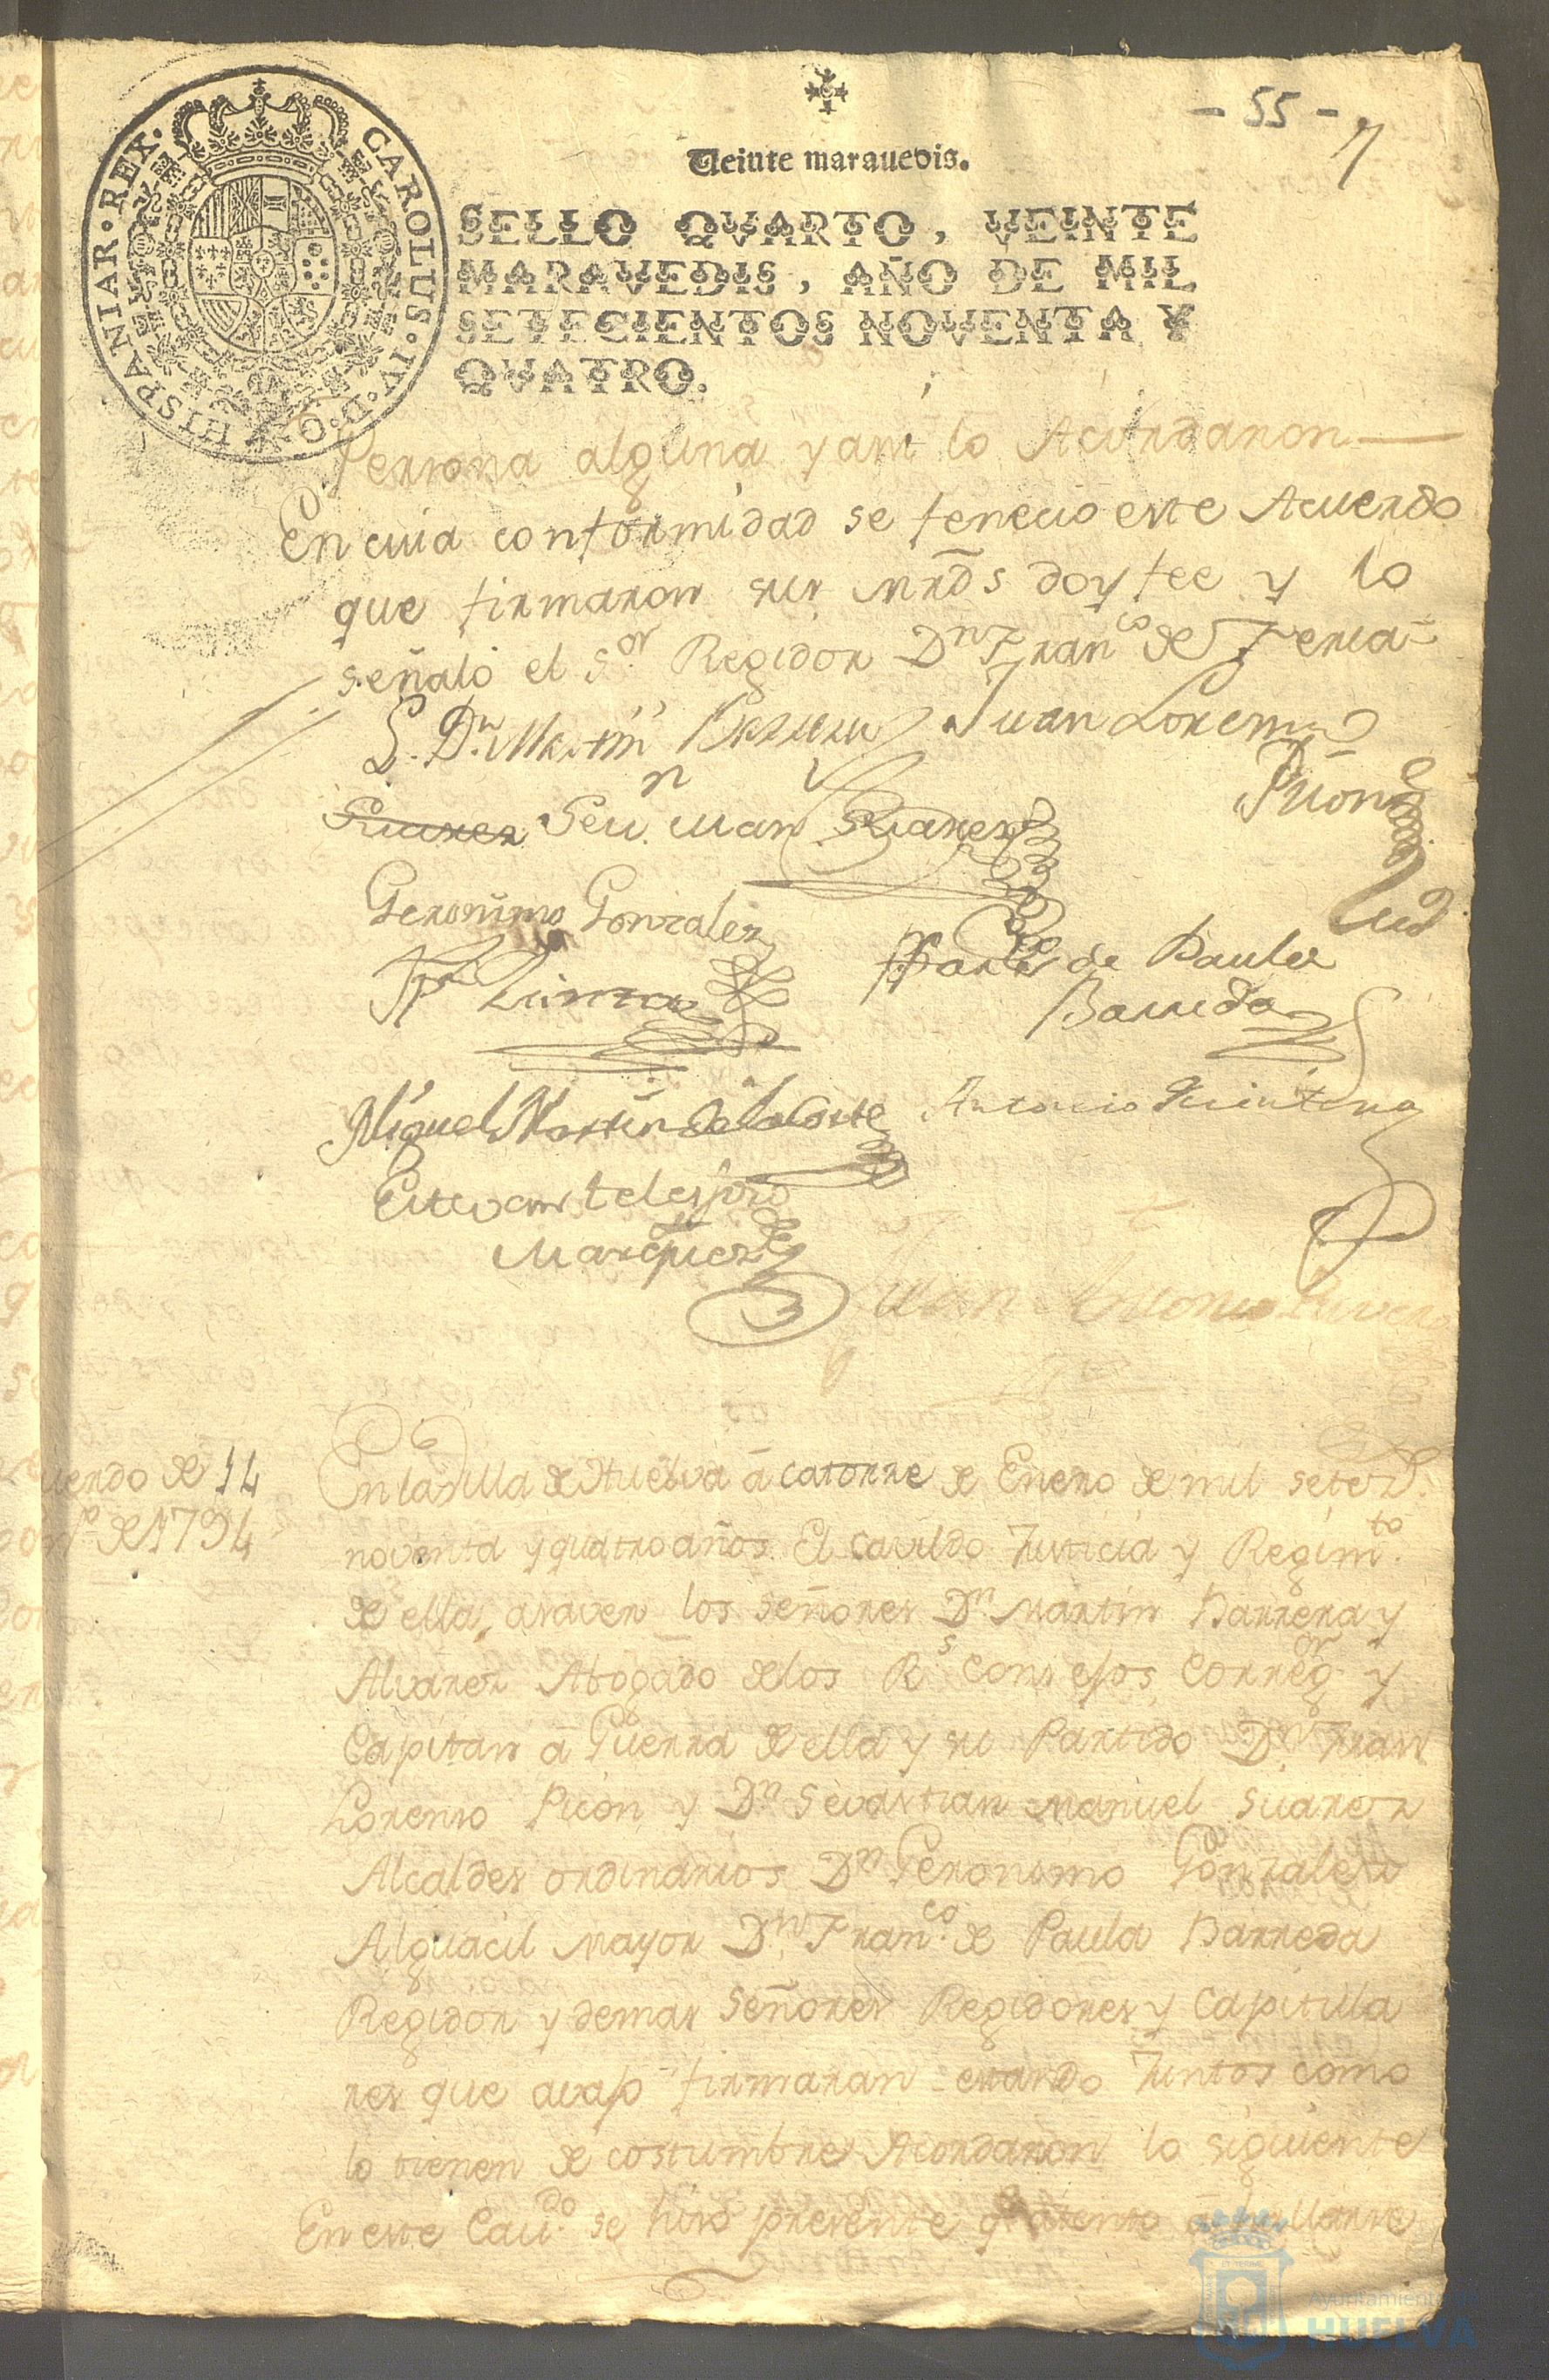 - 55 -
7
Veinte marauedis.
CAROLUS · IV · D · G · HISPANIAR · REX ·
SELLO QVARTO, VEINTE
MARAVEDIS, AÑO DE MIL
SETECIENTOS NOVENTA Y
QVATRO.
Persona alguna y asi lo Acordaron
En cuia conformidad se fenecio este Acuerdo
que firmaron sus mrds doy fee y lo
señaló el Sor. Regidor Dn Franco de Feria
L. Dn. Martin Barrera Juan Lorenso
Picon
Suarez Sevn. Man Suarez
Geronimo Gonzalez
Franco de Paula
Barreda
Miguel Martin de la Corte Antonio Quintero
Estevan telesforo
Marquez
Juan Antonio Rivera
uerdo de 14
de 1794
En la Villa de Huelva á catorze de Enero de mil setezs.
noventa y quatro años. El cavildo Justicia y Regimto.
de ella, asaver los señores Dn Martin Barrera y
Alvarez Abogado delos Rs Consejos Corregor y
Capitan á Guerra de ella y su Partido Dn Juan
Lorenso Picon, y Dn Sevastian Manuel Suarez
Alcaldes ordinarios Dn Geronimo Gonzalez
Alguacil Mayor Dn. Franco. de Paula Barreda
Regidor y demas señores Regidores y Capitula
res que avajo firmaran estando Juntos como
lo tienen de costumbre Acordaron lo siguiente
En este Cavdo. se hizo presente q atento a hallarse
Ayuntamiento de
HUELVA